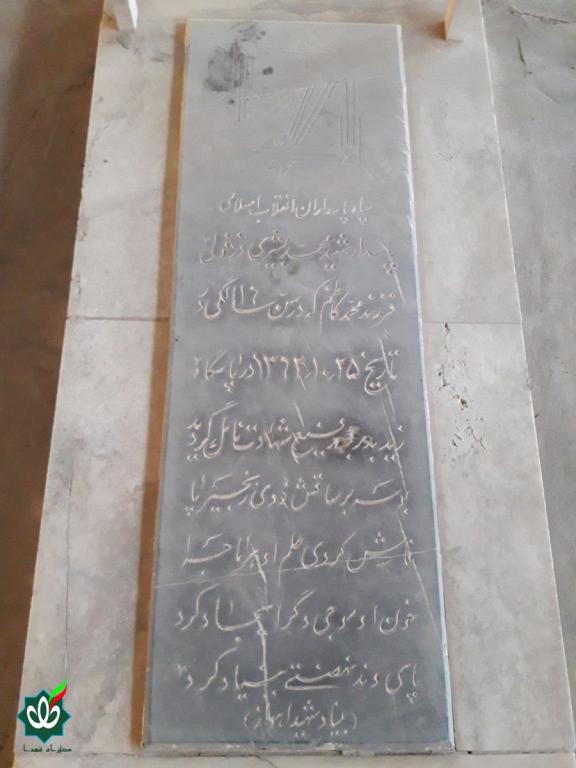 سپاه پاسداران انقلاب اسلامی
پاسدار شهید محمد بشیری دزفولی
فرزند محمد کاظم که در سن ۱۶ سالگی در
تاریخ ۱۳۶۲٫۱۰٫۲۵ در پاسگاه
زید به درجه رفیع شهادت نائل گردید
بوسه بر ساقش زدی زنجیر پا
فاش کردی علم او ماجرا
خون او موجی دگر ایجاد کرد
پای در بند نهضتی بنیاد کرد
(بنیاد شهید اهواز)
گلزار شهدا